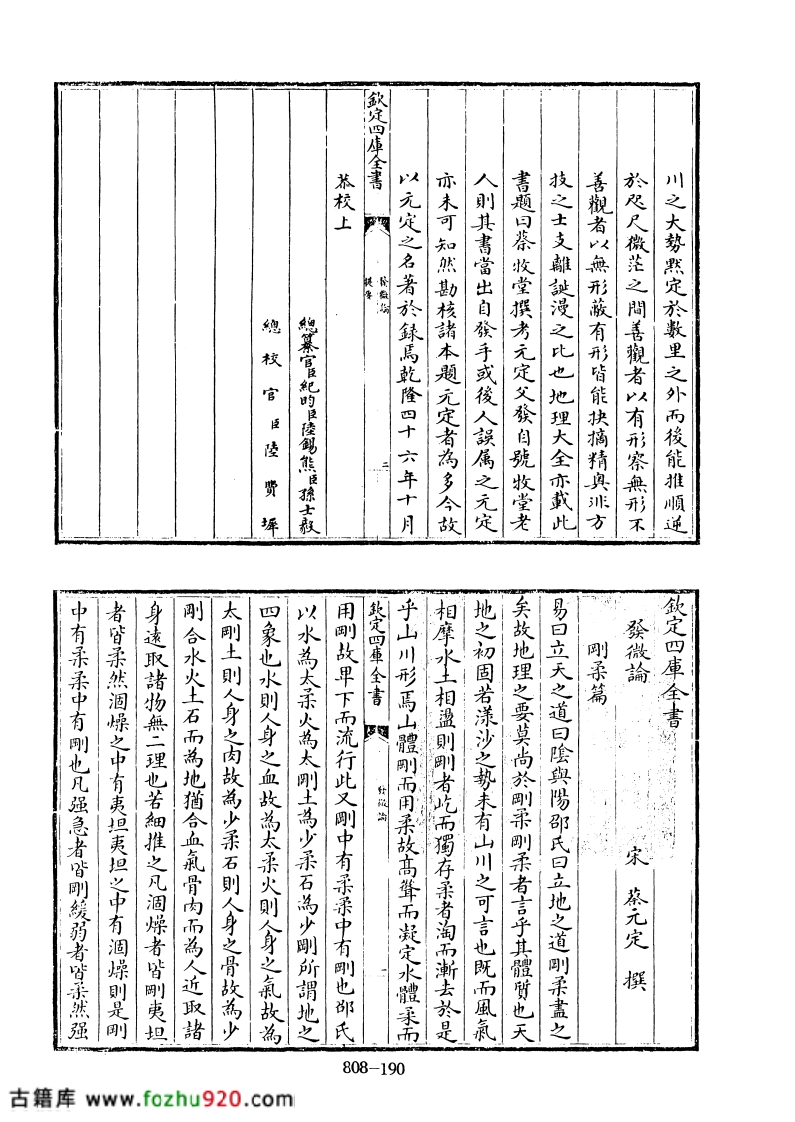 川之大勢黙定於數里之外而後能推順逆
於咫尺微茫之間善觀者以有形察無形不
善觀者以無形蔽有形皆能抉摘精奥非方
技之士支離誕漫之比也地理大全亦載此
書題曰蔡牧堂撰考元定父發自號牧堂老
人則其書當出自發手或後人誤属之元定
亦未可知然勘核諸本題元定者為多今故
以元定之名著於録焉乾隆四十六年十月
欽定四庫全書
發微論
提要
二
恭校上
總纂官臣紀昀臣陸錫熊臣孫士毅
總校官臣陸費墀
欽定四庫全書
發微論
宋 蔡元定 撰
剛柔篇
易曰立天之道曰陰與陽邵氏曰立地之道剛柔盡之
矣故地理之要莫尚於剛柔剛柔者言乎其體質也天
地之初固若漾沙之勢未有山川之可言也既而風氣
相摩水土相盪則剛者屹而獨存柔者淘而漸去於是
乎山川形焉山體剛而用柔故髙聳而凝定水體柔而
欽定四庫全書
發微論
一
用剛故卑下而流行此又剛中有柔柔中有剛也邵氏
以水為太柔火為太剛土為少柔石為少剛所謂地之
四象也水則人身之血故為太柔火則人身之氣故為
太剛土則人身之肉故為少柔石則人身之骨故為少
剛合水火土石而為地猶合血氣骨肉而為人近取諸
身逺取諸物無二理也若細推之凡涸燥者皆剛夷坦
者皆柔然涸燥之中有夷坦夷坦之中有涸燥則是剛
中有柔柔中有剛也凡强急者皆剛緩弱者皆柔然强
808-190
古籍库 www.fozhu920.com